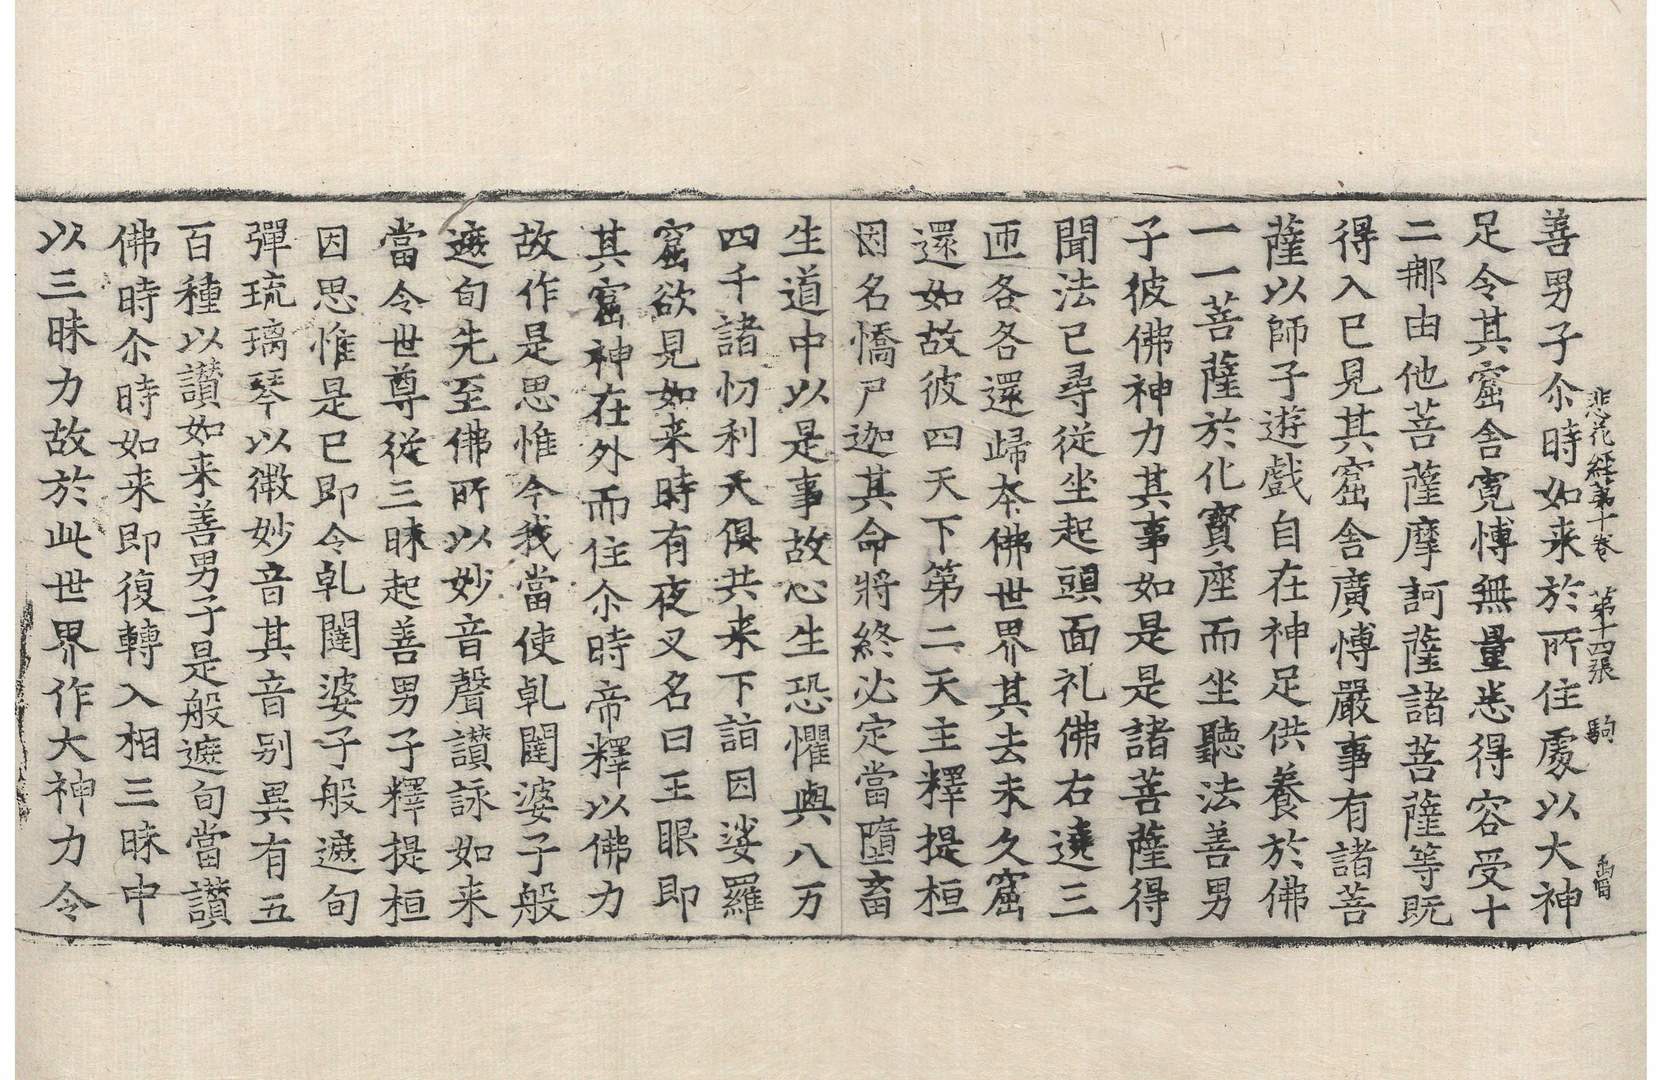 悲花經第十卷　第十四張　駒
善男子尒時如来於所住處以大神
足令其窟舍寛愽無量悉得容受十
二那由他菩薩摩訶薩諸菩薩等既
得入已見其窟舍廣愽嚴事有諸菩
薩以師子遊戲自在神足供養於佛
一一菩薩於化寳座而坐聽法善男
子彼佛神力其事如是是諸菩薩得
聞法已尋從坐起頭面礼佛右遶三
迊各各還歸夲佛世界其去未久窟
還如故彼四天下第二天主釋提桓
因名憍尸迦其命將終必定當墮畜
生道中以是事故心生恐懼與八万
四千諸忉利天俱共来下詣因娑羅
窟欲見如来時有夜叉名曰王眼即
其窟神在外而住尒時帝釋以佛力
故作是思惟今我當使乹闥婆子般
遮旬先至佛所以妙音聲讃詠如来
當令世尊從三昧起善男子釋提桓
因思惟是已即令乹闥婆子般遮旬
彈琉璃琴以微妙音其音别異有五
百種以讃如来善男子是般遮旬當讃
佛時尒時如来即復轉入相三昧中
以三昧力故於此世界作大神力令